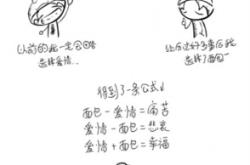 以前的我一定会
选择爱情
让
选择了面包
得到了一条公式↓
面包－爱情＝痛苦
爱情－面包＝悲哀
爱情＋面包＝幸福